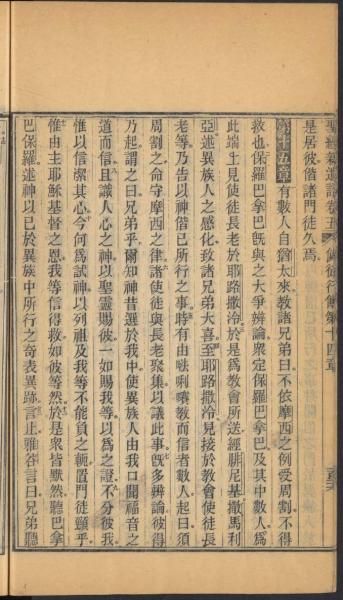 聖經新遺詔卷五 使徒行傳第十四章
是居彼偕諸門徒久焉
第十五章 有數人自猶太來教諸兄弟曰不依摩西之例受周割不得
救也保羅巴拿巴既與之大爭辨論衆定保羅巴拿巴及其中數人爲
此端上見使徒長老於耶路撒泠於是爲教會所送經腓尼基撒馬利
亞述異族人之感化致諸兄弟大喜至耶路撒泠見接於教會使徒長
老等乃告以神偕已所行之事時有由𠵽唎㘔教而信者數人起曰須
周割之命守摩西之律諸使徒與長老聚集以議此事既多辨論彼得
乃起謂之曰兄弟乎爾知神昔選於我中使異族人由我口聞福音之
道而信且識人心之神以聖靈賜彼一如賜我等以爲之證不分彼我
惟以信潔其心今何爲試神以列祖及我等不能負之軛置門徒頸乎
惟由主耶穌基督之恩我等信得救如彼等然於是衆皆默然聽巴拿
巴保羅述神以已於異族中所行之奇表異跡言止雅各言曰兄弟聽